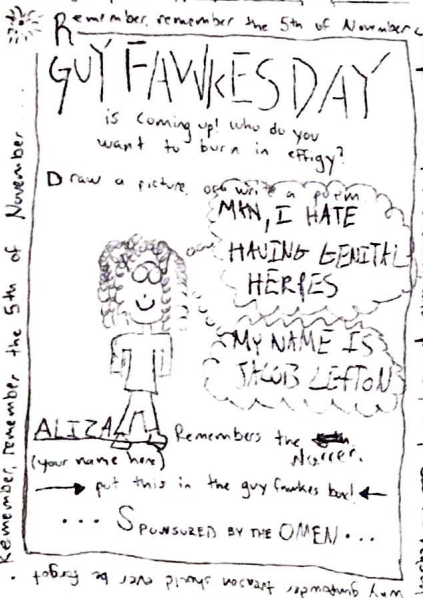 Remember, remember the 5th of November
GUY FAWKES DAY
is coming up! who do you
want to burn in effigy?
Draw a picture, or write a poem
MAN, I HATE
HAVING GENITAL
HERPES
MY NAME IS
JACOB LEFTON
ALIZA Remembers the
(your name here)
put this in the guy fawkes box!
... SPONSORED BY THE OMEN ...
Remember, remember the 5th of November
why gunpowder treason should ever be forgot